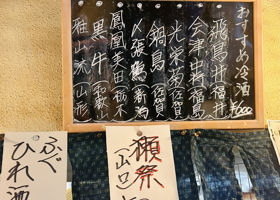 おすすめ冷酒
飛鳥井 福井
会津中将 (福島)
光栄菊 (佐賀)
鍋島 (佐賀)
〆張鶴 (新潟)
鳳凰美田 (栃木)
黒牛 (和歌山)
雅山流 (山形)
獺祭
(山口)
ふぐ
ひれ酒